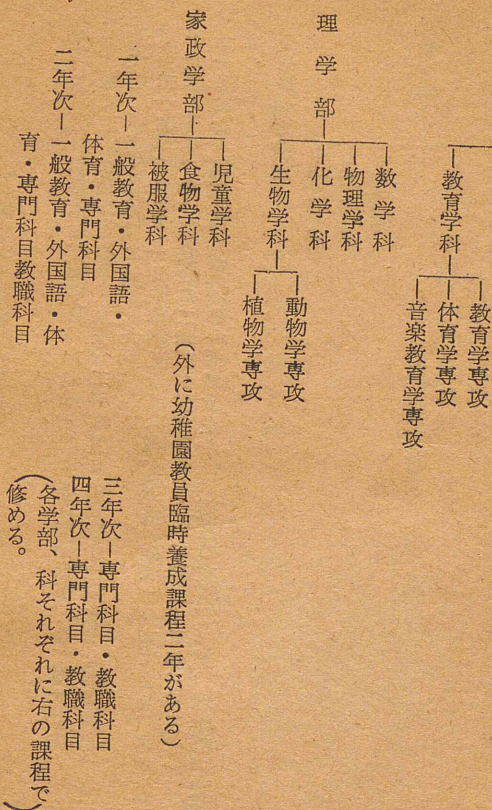 教育学科
教育学専攻
体育学専攻
音楽教育学専攻
理学部
数学科
物理学科
化学科
生物学科
動物学専攻
植物学専攻
家政学部
児童学科
食物学科
被服学科
(外に幼稚園教員臨時養成課程二年がある)
一年次―一般教育・外国語・
体育・専門科目
二年次―一般教育・外国語・体
育・専門科目教職科目
三年次―専門科目・教職科目
四年次―専門科目・教職科目
(各学部、科それぞれに右の課程で
修める。)